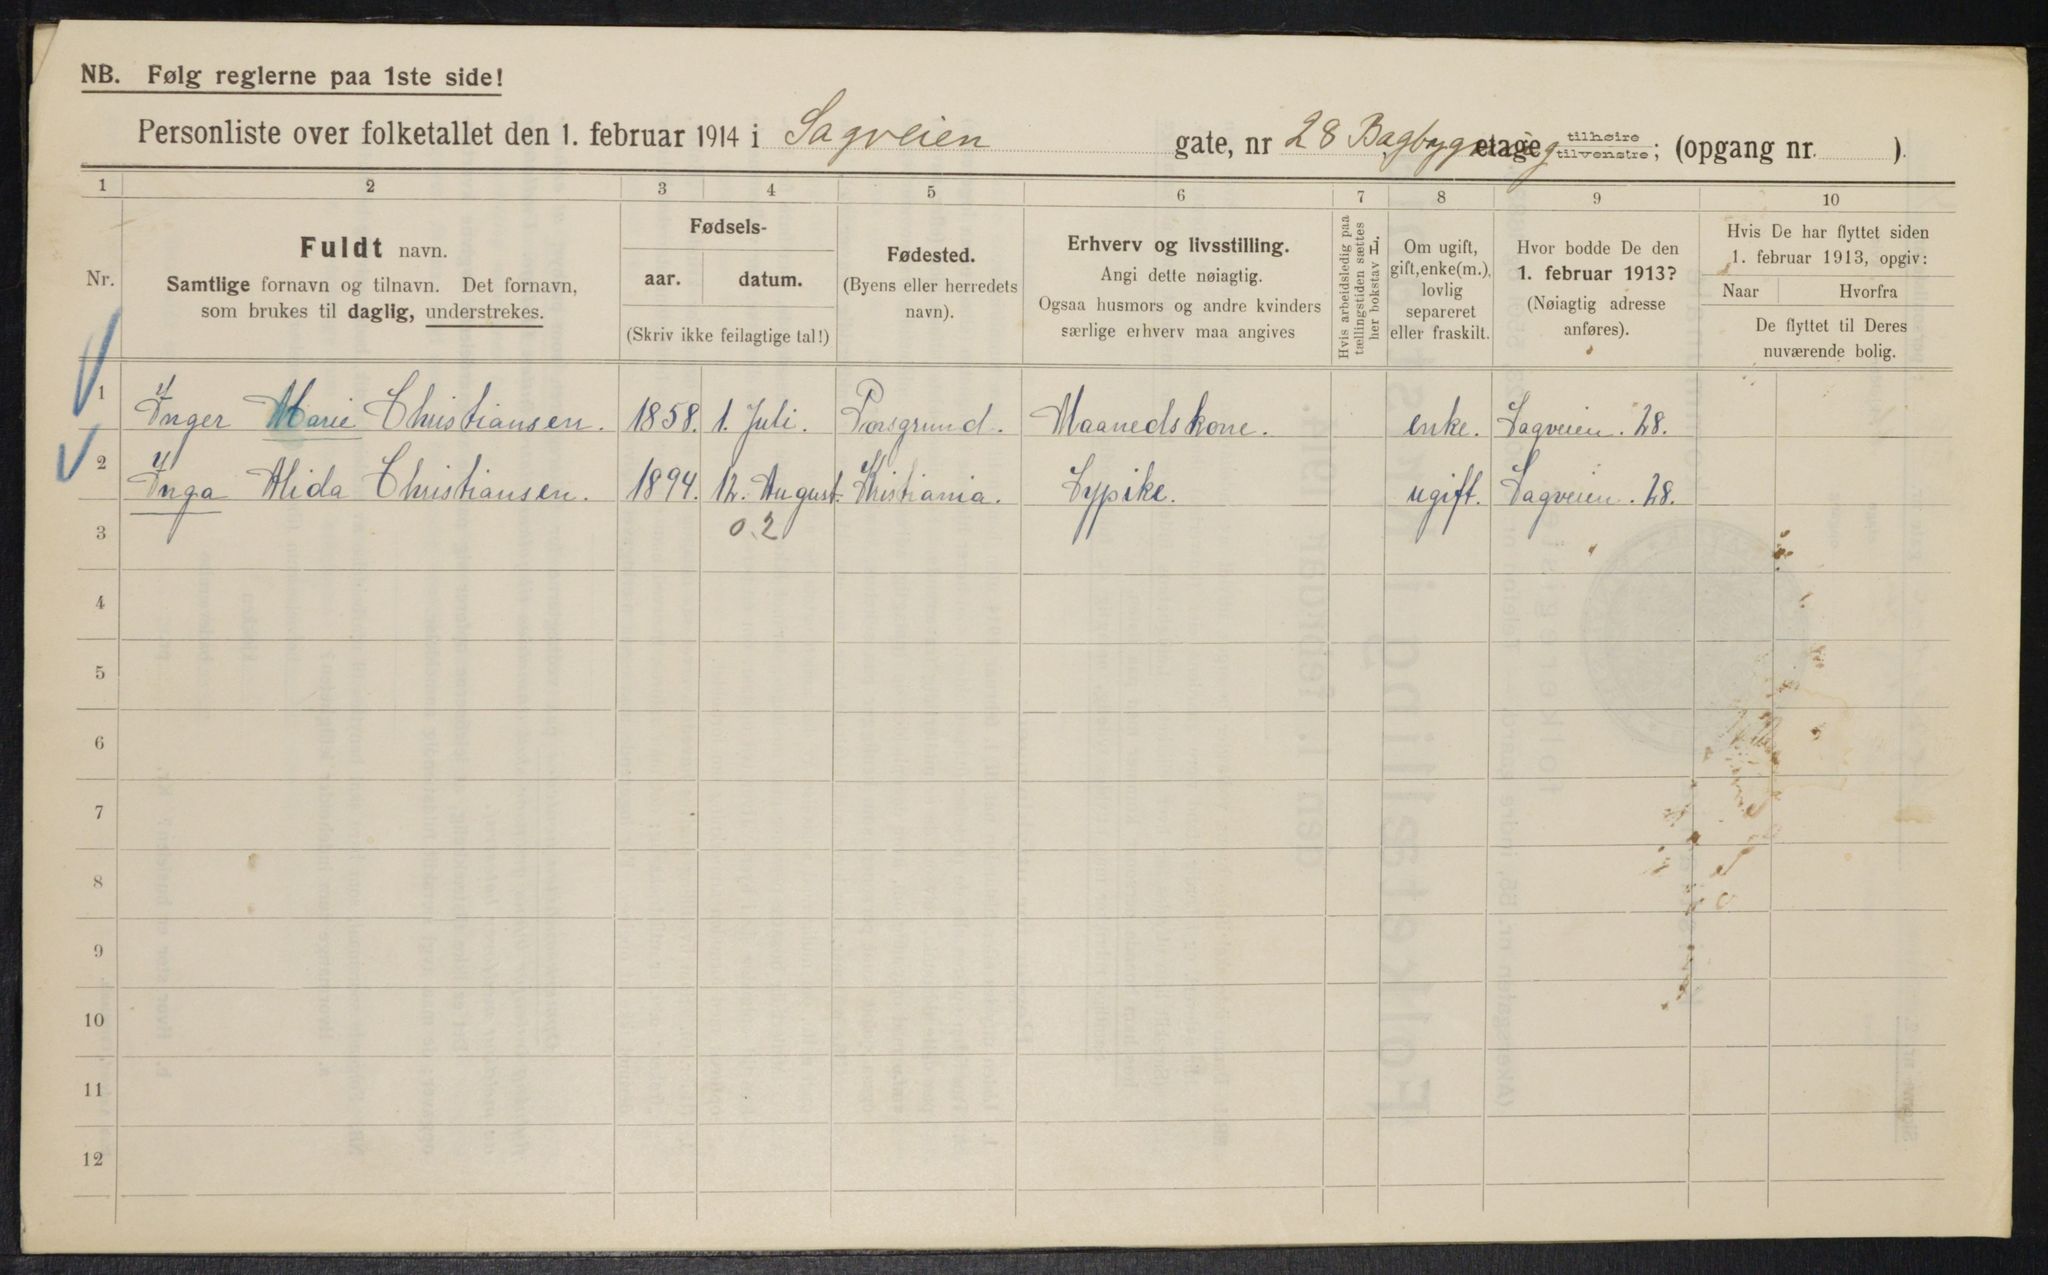 NB. Følg reglerne paa 1ste side!
Personliste over folketallet den 1. februar 1914 i Sagveien gate, nr 28 Bagbygning etage tilhøire tilvenstre; (opgang nr. ).
1 2 3 4 5 6 7 8 9 10
Nr.
Fuldt navn.
Samtlige fornavn og tilnavn. Det fornavn,
som brukes til daglig, understrekes.
Fødsels-
aar. datum.
(Skriv ikke feilagtige tal!)
Fødested.
(Byens eller herredets
navn).
Erhverv og livsstilling.
Angi dette nøiagtig.
Ogsaa husmors og andre kvinders
særlige erhverv maa angives
Hvis arbeidsledig paa
tællingstiden sættes
her bokstav L.
Om ugift,
gift, enke(m.),
lovlig
separeret
eller fraskilt.
Hvor bodde De den
1. februar 1913?
(Nøiagtig adresse
anføres).
Hvis De har flyttet siden
1. februar 1913, opgiv:
Naar Hvorfra
De flyttet til Deres
nuværende bolig.
1 Inger Marie Christiansen. 1858. 1. Juli. Porsgrund. Maanedskone. enke. Sagveien. 28.
2 Inga Alida Christiansen. 1894. 12. August. Kristiania. Sypike. ugift. Sagveien. 28.
3 0.2
4
5
6
7
8
9
10
11
12